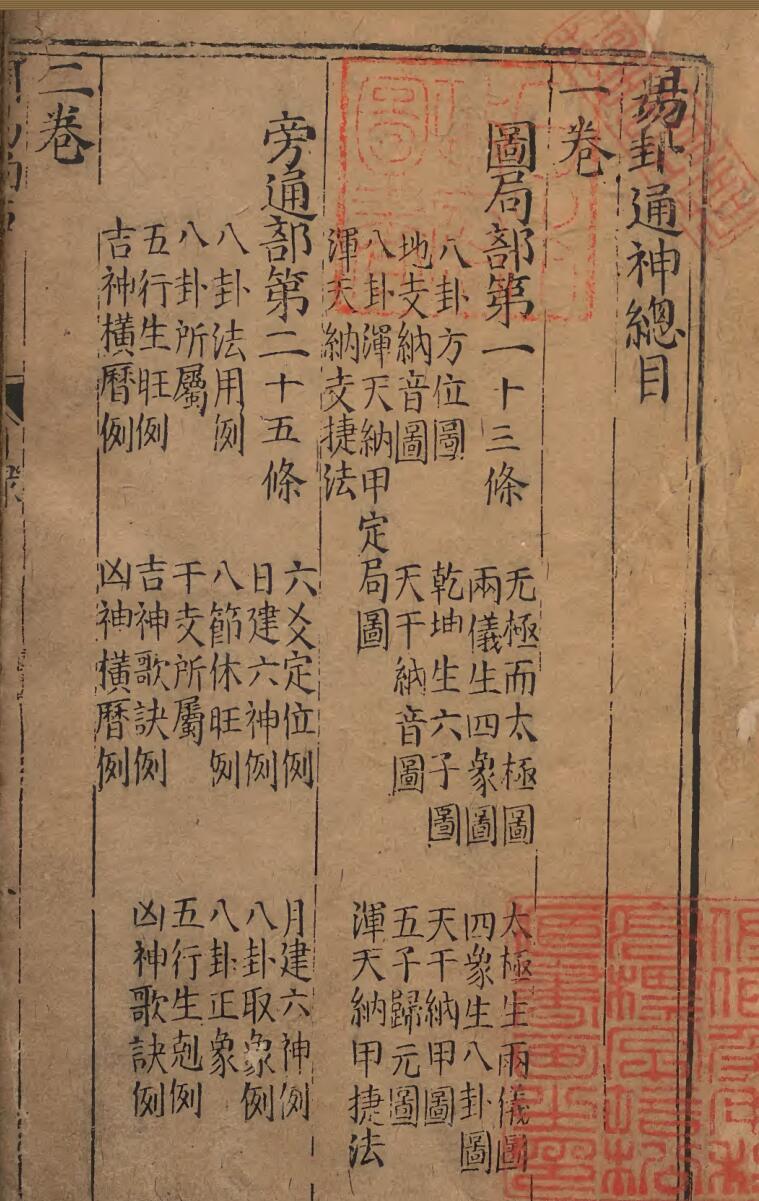 易卦通神總目
一卷
圖局部第一十三條
无極而太極圖 太極生兩儀圖
兩儀生四象圖 四象生八卦圖
八卦方位圖 乾坤生六子圖 天干納甲圖
地支納音圖 天干納音圖 五子歸元圖
八卦渾天納甲定局圖 渾天納甲捷法
渾天納支捷法
旁通部第二十五條
六爻定位例 月建六神例
日建六神例 八卦取象例
八卦法用例 八節休旺例 八卦正象
八卦所屬 干支所屬 五行生剋例
五行生旺例 吉神歌訣例 凶神歌訣例
吉神橫曆例 凶神橫曆例
二卷